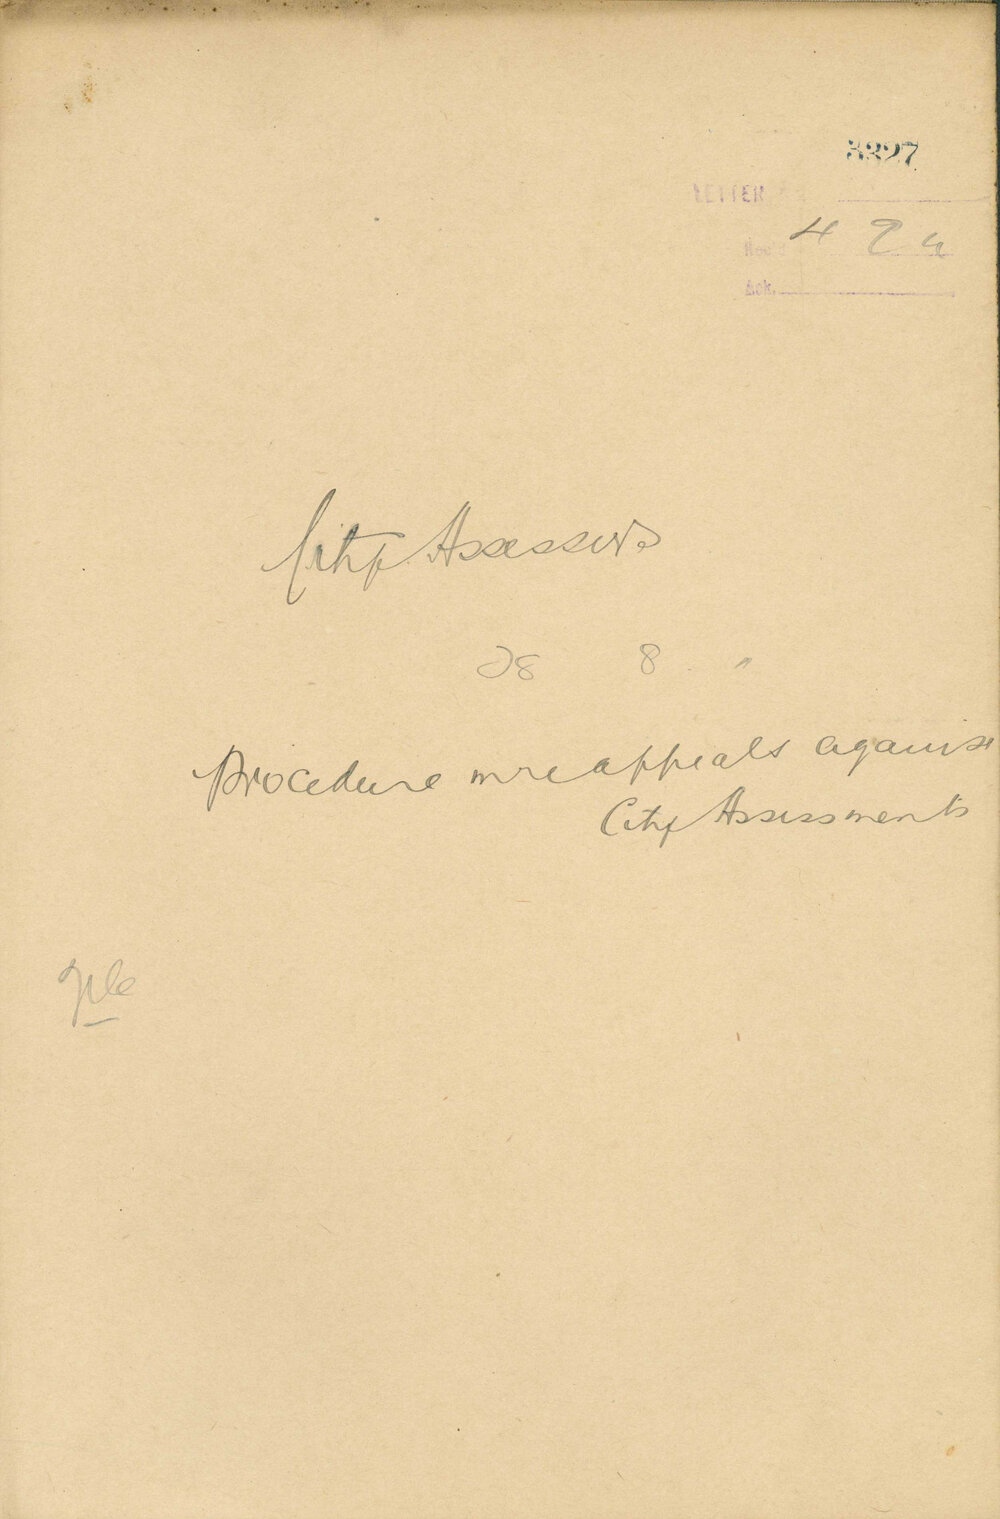 3327
LETTER
Rec'd 4 9
Ack.
City Assessor
28 8 "
Procedure in re appeals against
City Assessments
File